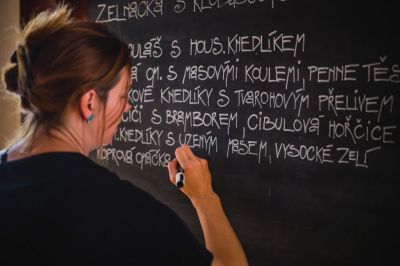 ZELNAČKA S BRAMBOREM
GULÁŠ S HOUS. KNEDLÍKEM
OM. S MASOVÝMI KOULEMI, PENNE TĚS
KNEDLÍKY S TVAROHOVÝM PŘELIVEM
S BRAMBOREM, CIBULOVÁ HOŘČICE
KNEDLÍKY S UZENÝM MASEM, VYSOCKÉ ZELÍ
KOPROVÁ OMÁČKA